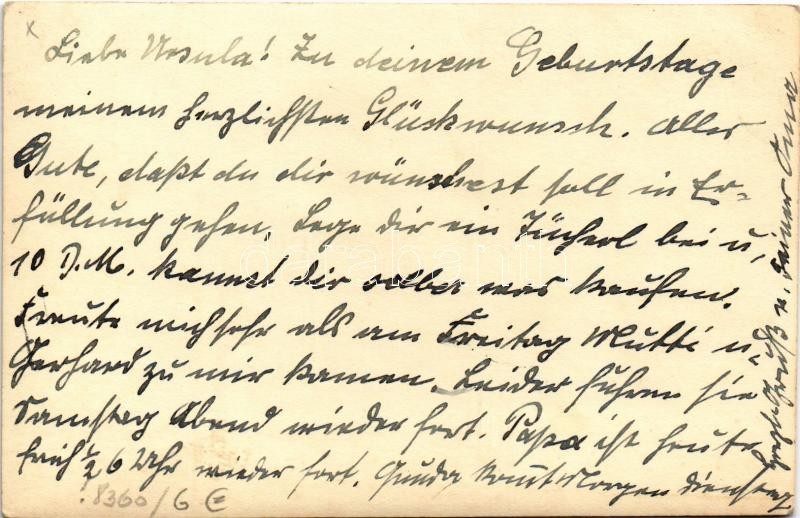 Liebe Ursula! Zu deinem Geburtstage
meinem herzlichsten Glückwunsch. Alles
Gute, daßt du dir wünschest soll in Er=
füllung gehen. Lege dir ein Tücherl bei u,
10 D.M. kannst dir selber was kaufen.
Freute mich sehr als am Freitag Mutti u.
Gerhard zu mir kamen. Leider fuhren sie
Samstag Abend wieder fort. Papa ist heute
früh ½ 6 Uhr wieder fort. Gunda komt Morgen Dienstag
herzl. Gruß v. deiner Oma
8360/6
darabanth